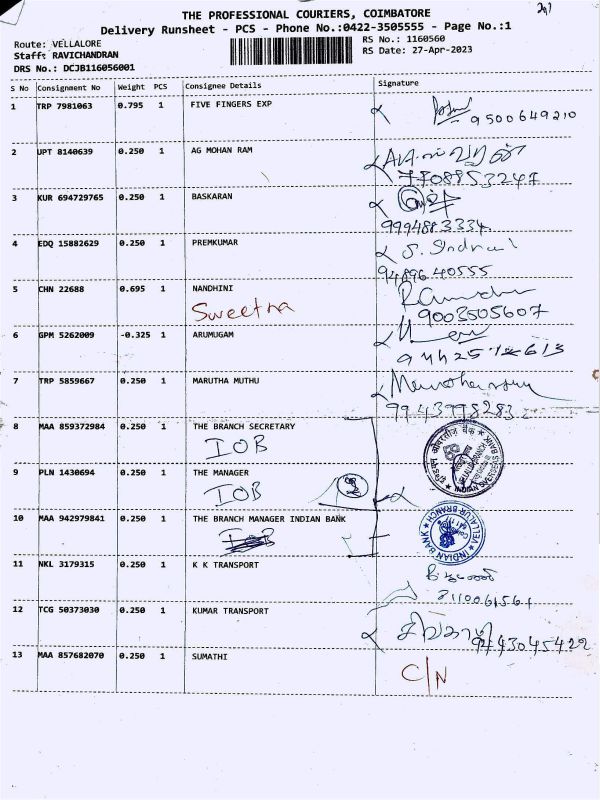 THE PROFESSIONAL COURIERS, COIMBATORE
Delivery Runsheet - PCS - Phone No.:0422-3505555 - Page No.:1
Route: VELLALORE
RS No.: 1160560
Staff: RAVICHANDRAN
RS Date: 27-Apr-2023
DRS No.: DCJB116056001
S No Consignment No Weight PCS Consignee Details Signature
1 TRP 7981063 0.795 1 FIVE FINGERS EXP
9500649210
2 UPT 8140639 0.250 1 AG MOHAN RAM
7708953247
3 KUR 694729765 0.250 1 BASKARAN
9994883334
4 EDQ 15882629 0.250 1 PREMKUMAR
9489640555
5 CHN 22688 0.695 1 NANDHINI
Sweetha
9003505607
6 GPM 5262009 -0.325 1 ARUMUGAM
7 TRP 5859667 0.250 1 MARUTHA MUTHU
9943998283
8 MAA 859372984 0.250 1 THE BRANCH SECRETARY
IOB
9 PLN 1430694 0.250 1 THE MANAGER
IOB
10 MAA 942979841 0.250 1 THE BRANCH MANAGER INDIAN BANK
INDIAN BANK VELLALUR BRANCH
11 NKL 3179315 0.250 1 K K TRANSPORT
12 TCG 50373030 0.250 1 KUMAR TRANSPORT
9443045422
13 MAA 857682070 0.250 1 SUMATHI
C/N